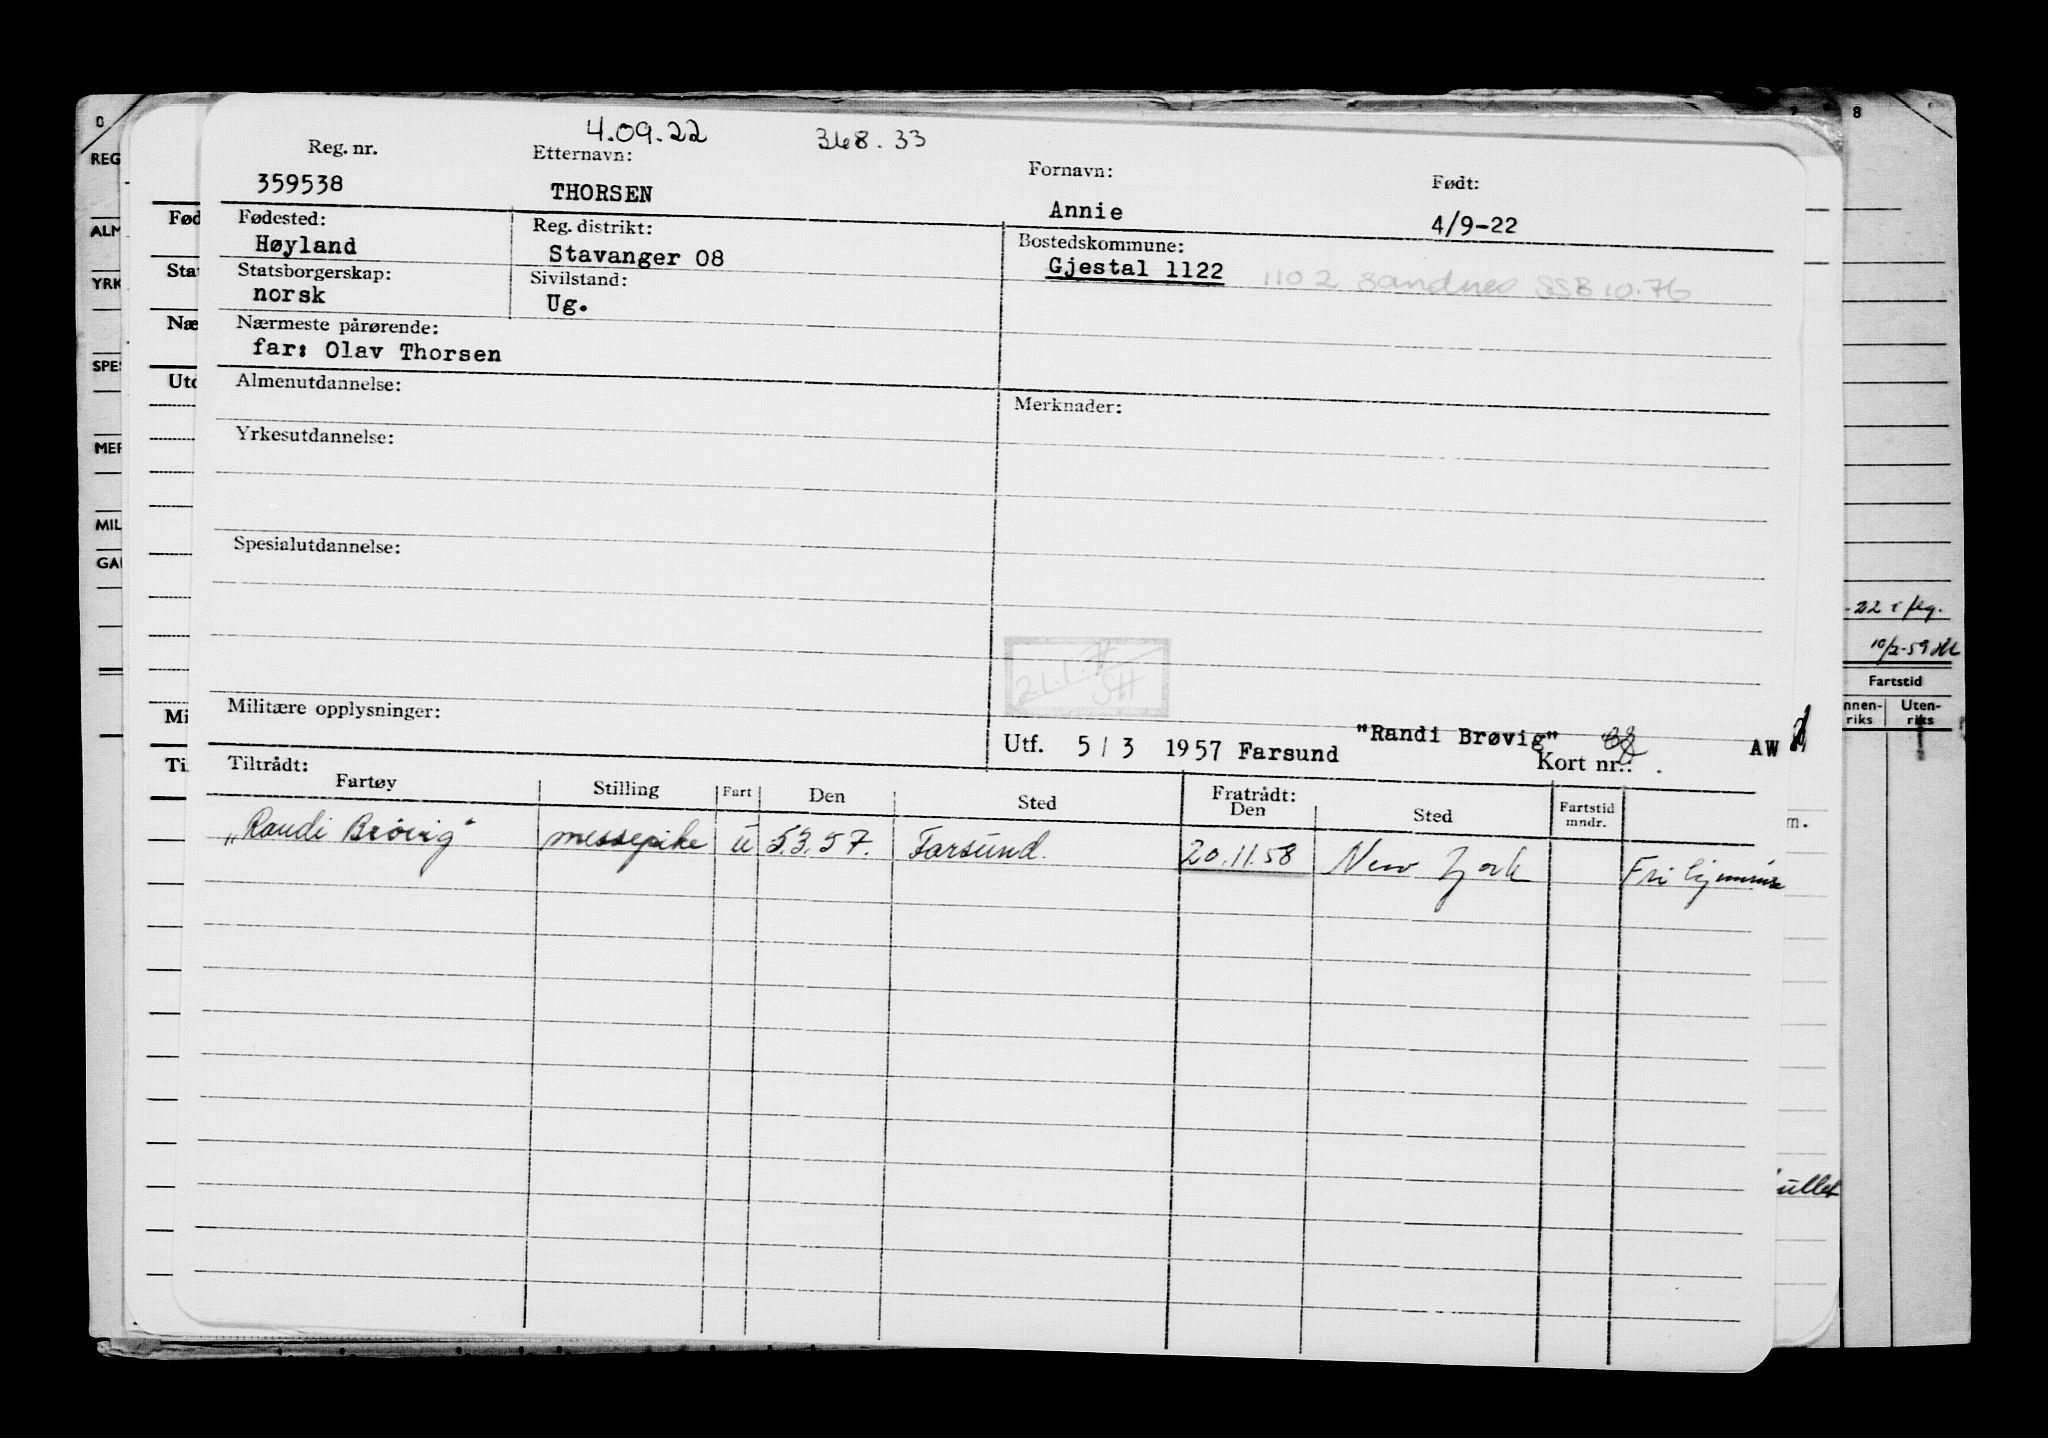 4.09.22 368.33
Reg. nr. Etternavn: Fornavn: Født:
359538 THORSEN Annie 4/9-22
Fødested: Reg. distrikt: Bostedskommune:
Høyland Stavanger 08 Gjestal 1122 1102 Sandnes SSB 10.76
Statsborgerskap: Sivilstand:
norsk Ug.
Nærmeste pårørende:
far: Olav Thorsen
Almenutdannelse: Merknader:
Yrkesutdannelse:
Spesialutdannelse:
Militære opplysninger:
Utf. 5/3 1957 Farsund "Randi Brøvig" AW
Kort nr.:
Tiltrådt: Fratrådt:
Fartøy Stilling Fart Den Sted Den Sted Fartstid mndr.
"Randi Brøvig" messepike u 5.3.57. Farsund. 20.11.58 New York Fri
0
REG
ALM
YRK
SPES
MER
MIL
Fød
Stat
Næ
Utd
Mi
8
10/2-59
Fartstid
Uten-
riks